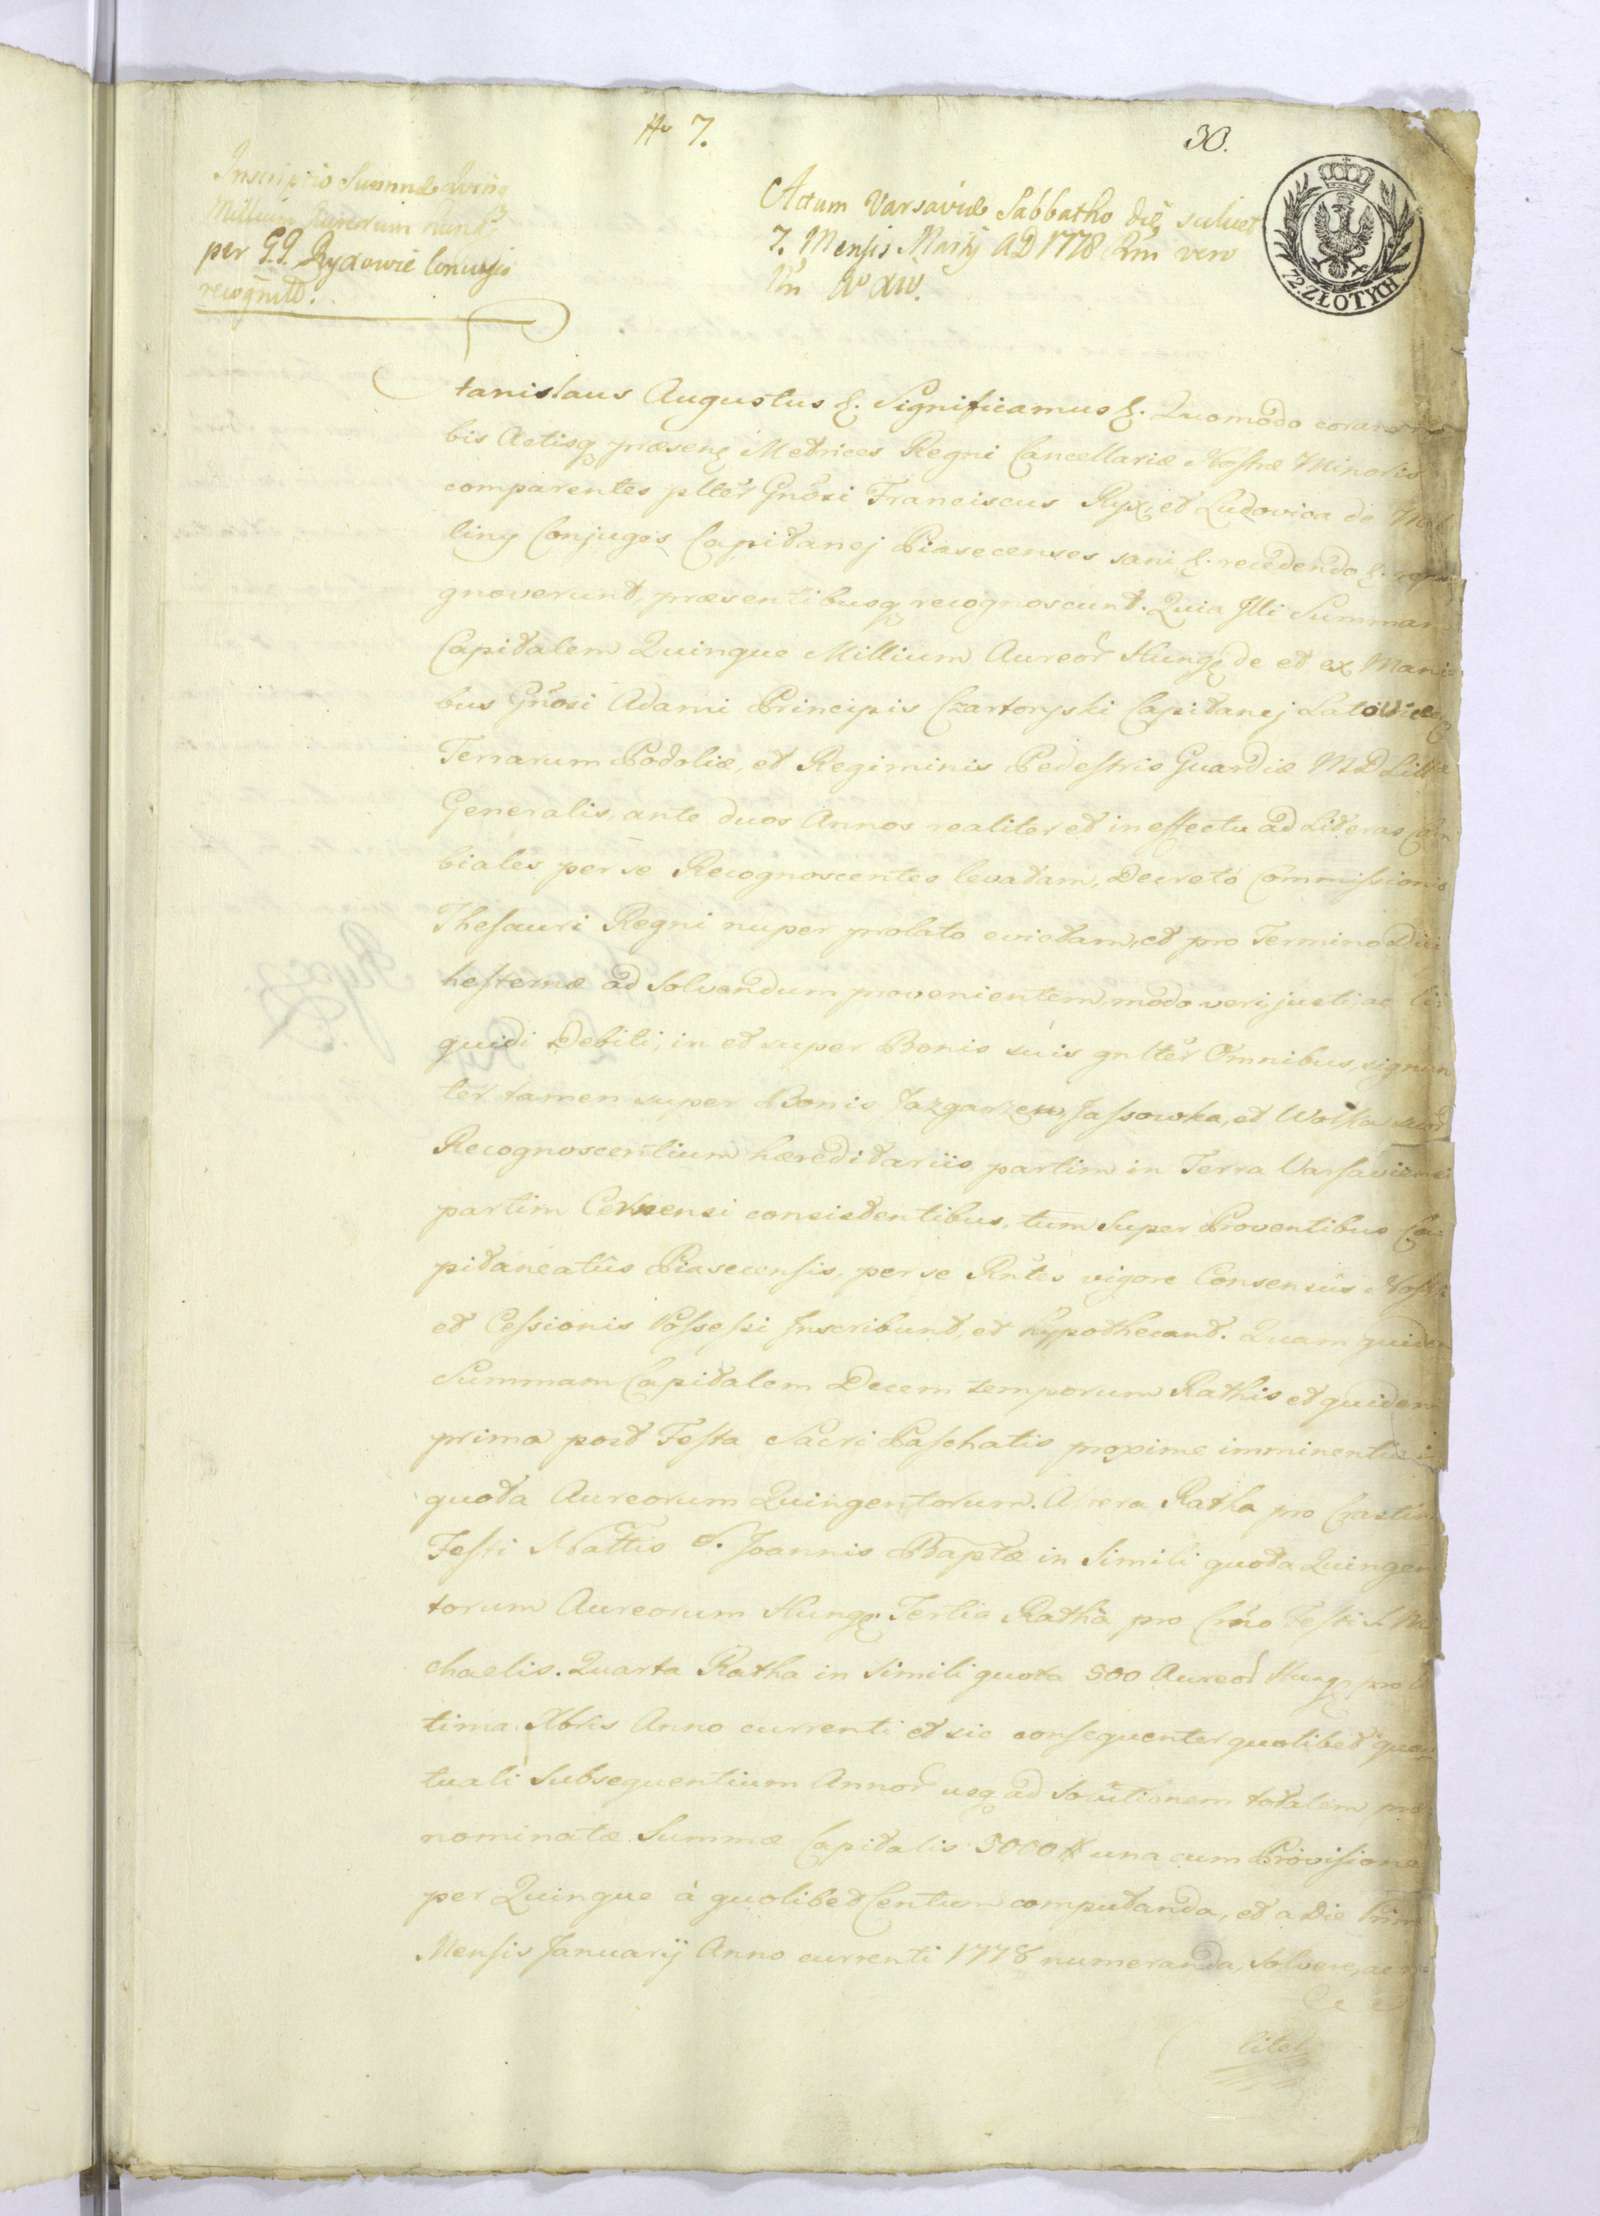 № 7.
30.
Inscriptio Summæ Quinq
Millium Aureorum Hung
per G.G. Ryxowie Conjuges
recognita.
Actum Varsaviæ Sabbatho die scilicet
7. Mensis Martij AD 1778 Rni vero
Nri Ao XIV.
72. ZŁOTYCH.
tanislaus Augustus &. Significamus &. Quomodo coram no
bis Actisq præsens Metrices Regni Cancellariæ Nostræ Minoris
comparentes plter Gnosi Franciscus Ryx, et Ludovica de
liny Conjuges Capitanej Piasecenses sani &. recedendo &. reco
gnoverunt, præsentibusq recognoscunt. Quia Illi Summam
Capitalem Quinque Millium Aureor Hung de et ex Mani
bus Gnosi Adami Principis Czartoryski Capitanej Latovicen
Terrarum Podoliæ, et Regiminis Pedestris Guardiæ MD Litt
Generalis, ante duos Annos realiter et in effectu ad Literas Cam
biales per se Recognoscentes levatam, Decreto Commissionis
Thesauri Regni nuper prolato evictam, et pro Termino Diei
hesternæ ad solvendum provenientem, modo veri, justi, ac li
quidi Debiti, in et super Bonis suis gnlter Omnibus, signan
ter tamen super Bonis Jazgarzew, Jassowka, et Wolka suor
Recognoscentium hæreditariis partim in Terra Varsaviensi
partim Cernensi consistentibus, tum super Proventibus Ca
pitaneatûs Piasecensis, per se Rntes vigore Consensûs Nostri
et Cessionis Possessi Inscribunt, et hypothecant. Quam quidem
Summam Capitalem Decem temporum Rathis et quidem
prima post Festa Sacri Paschatis proxime imminentis in
quota Aureorum Quingentorum. Altera Ratha pro Crastino
Festi Nattis S. Joannis Baptæ in simili quota Quingen
torum Aureorum Hung. Tertia Ratha pro Crno Festi S. Mi
chaelis. Quarta Ratha in simili quota 500 Aureor Hung pro ul
tima Xbris Anno currenti et sic consequenter quolibet quar
tuali subsequentium Annor usq ad solutionem totalem præ
nominatæ Summæ Capitalis 5000 # una cum Provisione
per Quinque à quolibet Centum computanda, et a Die Prima
Mensis Januarij Anno currenti 1778 numeranda, solvere, ac